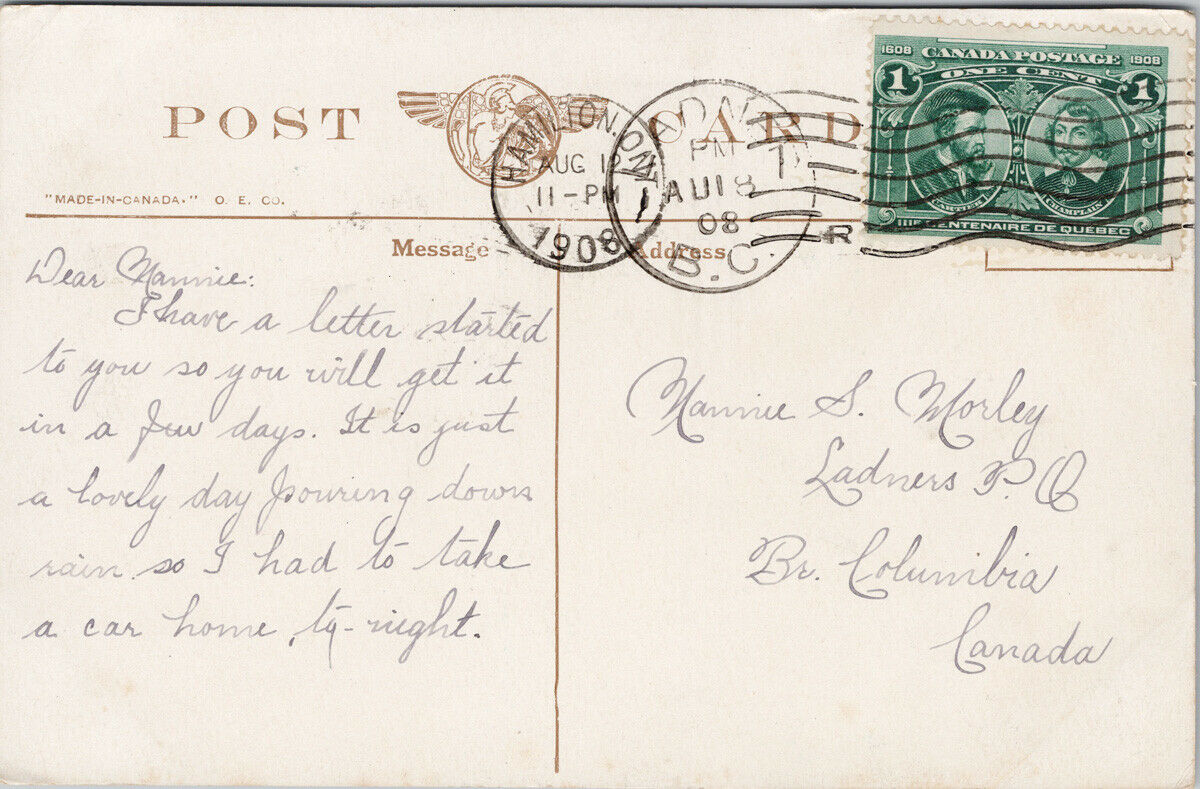 POST CARD
1608 CANADA POSTAGE 1908
ONE CENT
1 1
CARTIER CHAMPLAIN
IIIE CENTENAIRE DE QUÉBEC
HAMILTON, ONT.
AUG 12
11-PM
1908
PM
AU 18
08
B.C.
R
"MADE-IN-CANADA." O. E. CO.
Message
Address
Dear Nannie:
I have a letter started
to you so you will get it
in a few days. It is just
a lovely day pouring down
rain so I had to take
a car home to-night.
Nannie S. Morley
Ladners P.O
Br. Columbia
Canada